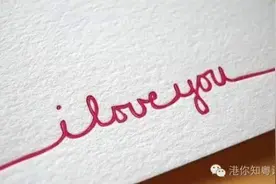 i love you
港你知粤